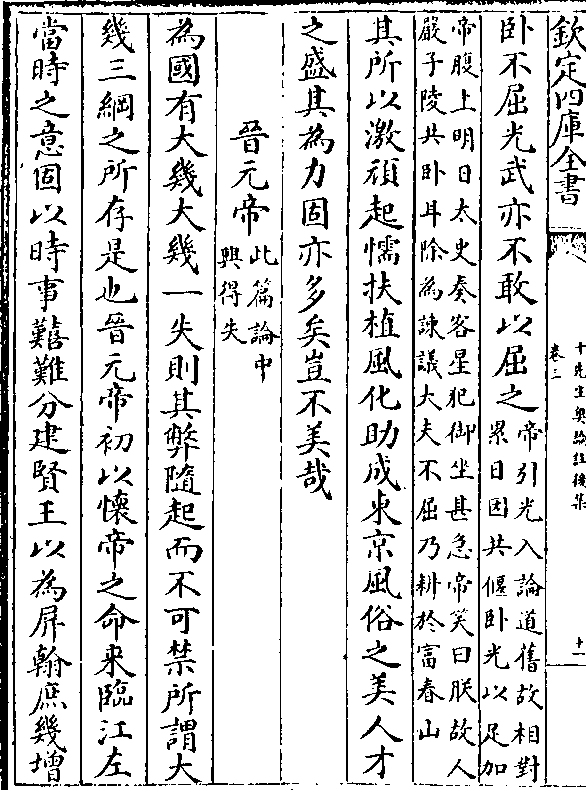 欽定四庫全書
十先生奧論註後集
卷三
十一
卧不屈光武亦不敢以屈之帝引光入論道舊故相對
累日因共偃卧光以足加
帝腹上明日太史奏客星犯御坐甚急帝笑曰朕故人
嚴子陵共卧耳除為諫議大夫不屈乃耕於富春山
其所以激頑起懦扶植風化助成東京風俗之美人才
之盛其為力固亦多矣豈不美哉
晉元帝此篇論中
興得失
為國有大幾大幾一失則其弊隨起而不可禁所謂大
幾三綱之所存是也晉元帝初以懷帝之命来臨江左
當時之意固以時事囏難分建賢王以為屏翰庶幾增